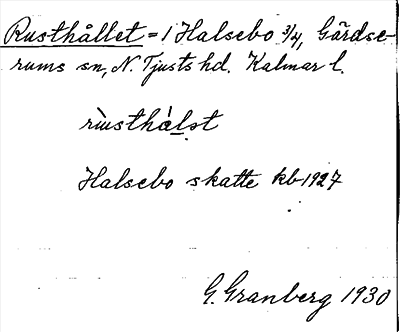 Rusthållet = 1 Halsebo 3/4, Gårdse-
rums sn, N. Tjusts hd. Kalmar l.
Halsebo skatte kb 1927
G. Granberg 1930